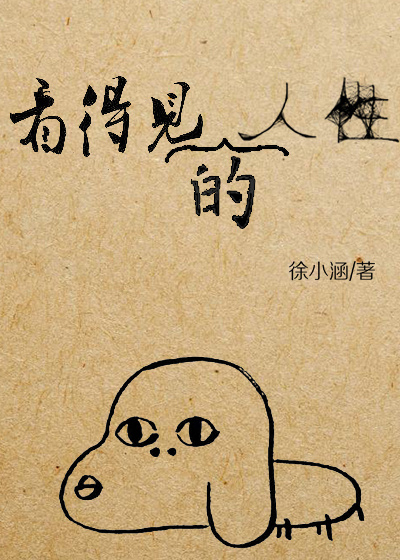 看得见人性
的
徐小涵/著